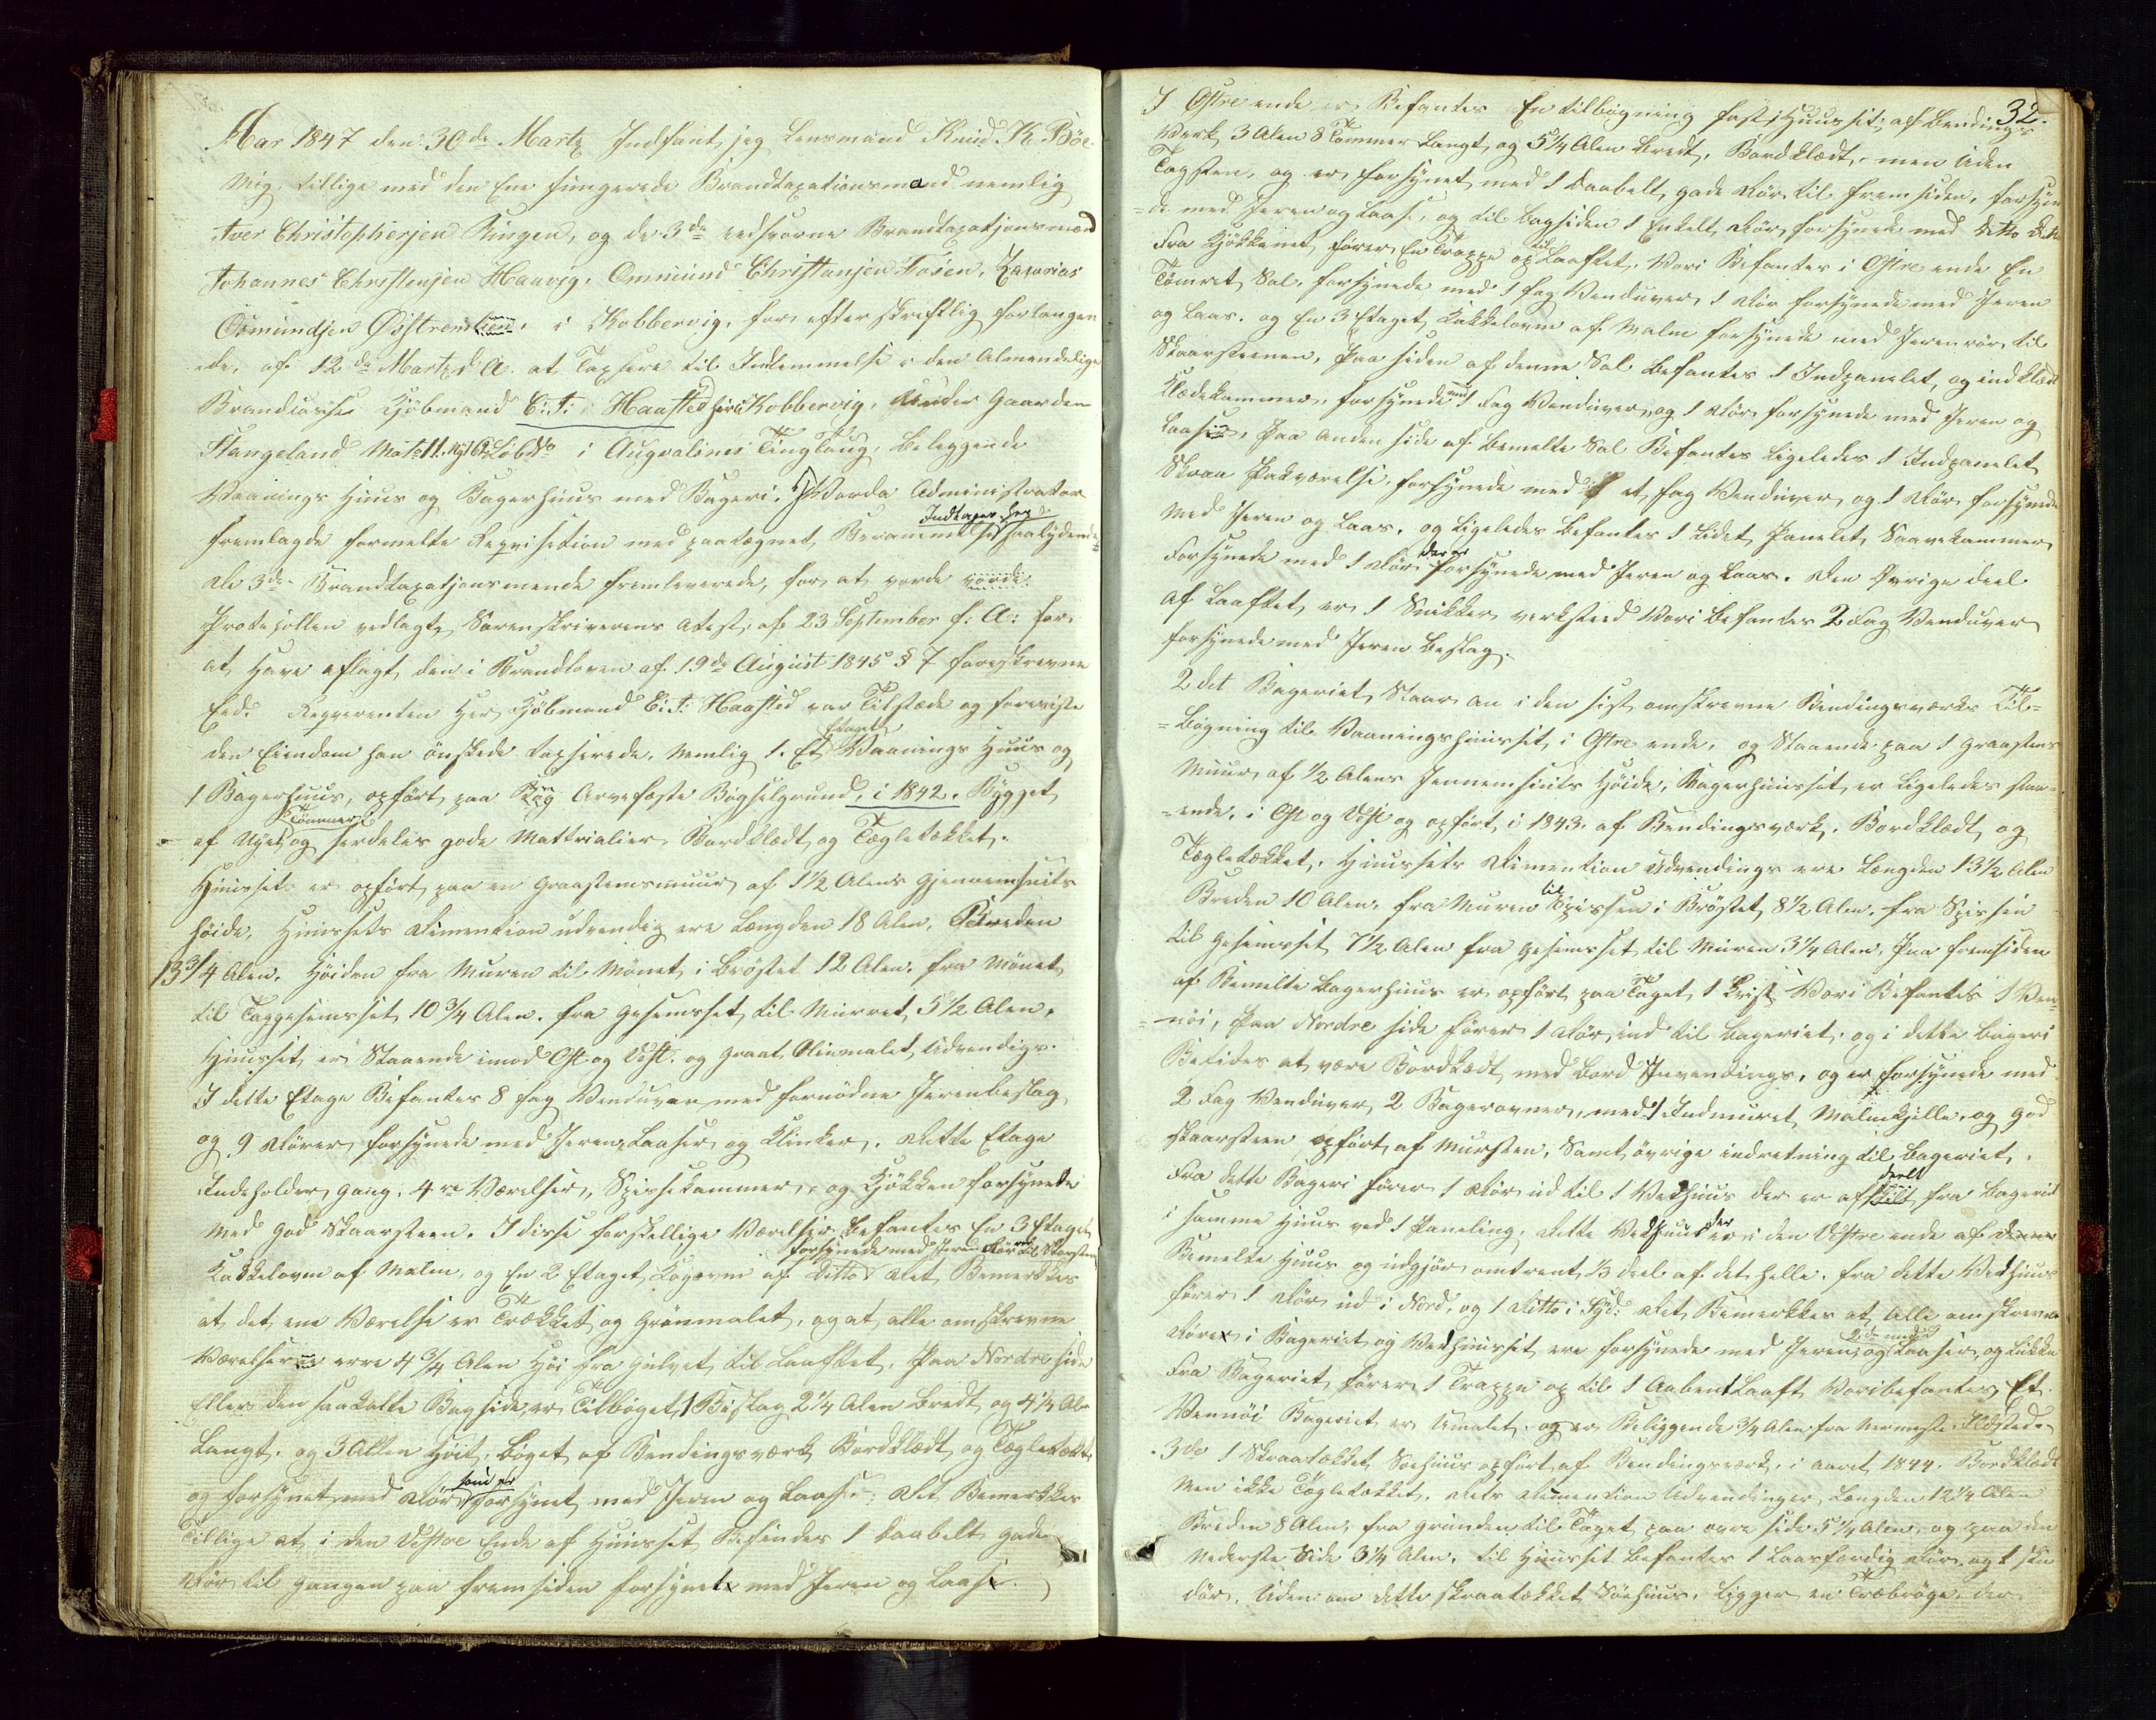 Aar 1847 den 30de Martz Indfant jeg Lensmand Knud K. Böe
Mig, tillige med den Ene fungerede Brandtaxationsmand nemlig
Iver Christophersen Ringen, og de 3de eedsvorne Brandtaxasjonsmænd
Johannes Christensen Haavig, Ommund Christiansen Fosen, Zacarias
Osmundsen Øsstremsien, i Kobbervig, for efter skriftlig forlangen
de, af 12de Martz d. A. at Taxere til Indlemmelse i den Almendelige
Brandcasse Kjöbmand C: F: Haafted her i Kobbervig, under Gaarden
Stangeland Mat. 11. Löb No i Augvalsnes Tinglaug, Beleggende
Vaanings Huus og Bagerhuus med Bageri. Vorda Administrator
fremlagde formelte Reqvisition med paategnet Berammelse Indtages her saalydende
De 3de Brandtaxasjonsmende fremleverede, for at vorde vorde
Protokollen vedlagt, Sorenskriverens Atest, af 23 September f. A: for
at have aflagt den i Brandloven af 19de August 1845 § 7 foreskrevne
Eed. Reqvirenten Her Kjöbmand C: F: Haafted var Tilstæde og foreviste
den Eiendom han önskede taxerede, Nemlig 1. Et Etages Vaanings Huus og
1 Bagerhuus, opfört paa Arvefæste Böygselgrund, i 1842. Bygget
af Nyet Tömmer og serdeles gode Mattrialier Bordklædt og Tægletekket.
Huusset er opfört paa en graastensmuur af 1 1/2 Alens Gjennemsnits
höide. Huussets Dimention udvendig ere Længden 18 Alen, Breden
13 3/4 Alen. Höiden fra Muren til Mönet i bröstet 12 Alen. fra Mönet
til Taggesimsset 10 3/4 Alen. fra Gesimsset til Murret, 5 1/2 Alen.
Huusset er Staaende imod Ost og Vest. og graat Oliemalet Udvendigs.
I dette Etage Befantes 8 fag Venduver med fornödne Jerenbeslag
og 9 Dörer, forsynede med Jeren, Laaser og Klinker. Dette Etage
Indeholder gang, 4re Værelser, Spissekammer, og Kjökken forsynede
med god Skaarsteen. I disse forskellige Værelser Befantes En 3 Etages
Kakkelovn af Malm, og En 2 Etaget, Kogovn af Ditto forsynede med Jeren Rör til Skorsteen Det Bemerkkes
at det ene Værelse er Trækket og Grönmalet, og at alle omskrevne
Værelser erre 4 3/4 Alen Höi fra Gulvet til Laaftet. Paa Nordre side
Eller den saakalte Bagside, er Tilböget 1 Bislag 2 1/4 Alen bredt og 4 1/4 Alen
Langt. og 3 Allen Höit. böget af Bendingsværk Bordklædt og Tægletækt.
og forsynet med Dör som er forsynet med Jeren og Laase. Det Bemerkkes
Tillige at i den Vestre Ende af Huusset Befindes 1 Daabelt gade
Dör til gangen paa fremsiden forsynet med Jeren og Laase.
32.
I Ostre ende er Befantes En tilbögning fast i Huusset, af bendings
Verk 3 Alen 8 Tommer Langt, og 5 1/4 Alen bredt, Bordklædt, men Uden
Tagsten, og er forsynet med 1 Daabelt, gade Dör til fremsiden, forsyne
=de med Jeren og Laase, og til bagsiden 1 Enkelt Dör forsynede med ditto ditto
Fra Kjökkenet, förer En Trappe op til Laaftet, Vori Befantes i Ostre ende En
Tömret Sal, forsynede med 1 fag Venduver, 1 Dör forsynede med Jeren
og Laas. og En 3 Etaget Kakkelovn af Malm forsynede med Jerenrör til
Skaarsteenen, Paa siden af denne Sal befantes 1 Indpanelet, og indklædt
Klædekammer, forsynede med 1 Fag Venduver, og 1 Dör forsynede med Jeren og
Laase, Paa anden side af bemelte Sal Befantes ligeledes 1 Indpanelet
Skraa Pakværelse, forsynede med et fag Venduver, og 1 Dör forsynede
med Jeren og Laas. og ligeledes befantes 1 Lidet Panelet Saavekammer
forsynede med 1 Dör der er forsynede med Jeren og Laas. Den Övrige deel
af Laaftet er 1 Snikker verksteed Vori befantes 2 Fag Venduver
forsynede med Jeren Beslag.
2det Bageriet Staar an i den sist omskrevne Bendingsværks Til-
=bögning til Vaaningshuusset, i Ostre ende, og Staaende paa 1 graastens
Muur af 1/2 Alens Jennemsnits Höide, Bagerhuusset, er ligeledes staa-
=ende, i Ost og Vest og opfört i 1843. af Bendingsværk. Bordklædt, og
Tægletækket, Huussets Dimention Udvendings ere Længden 13 1/2 Alen
Breden 10 Alen, fra Muren til Spissen i Bröstet 8 1/2 Alen. fra Spissen
til Gesimsset 7 1/2 Alen fra Gesimsset til Muren 3 1/4 Alen. Paa fremsiden
af Bemelte bagerhuus er opfört paa Taget 1 Kvist Vori Befantes 1 Ven-
=növ, Paa Nordre side förer 1 Dör, ind til bageriet, og i dette bageri
Besides at være Bordklædt med bord Invendings, og er forsynede med
2 Fag Venduver, 2 Bagerovner, med 1 Indmuret Malmkjelle, og god
Skaarsteen opfört, af Mursten, Samt övrige indretning til bageriet.
Fra dette Bageri förer 1 Dör ud til 1 Vedhuus der er afdeelt fra bageriet
i samme Huus ved 1 Paneling. dette Vedhuus der er i den Vestre ende af denne
Bemelte Huus og udgjör omtrent 1/3 deel af det Helle. fra dette Vedhuus
förer 1 Dör ud i Nord, og 1 Ditto i Syd. Det Bemerkkes at Alle omskrevne
Dörer i Bageriet og Vedhuusset ere forsynede med Jeren, og Laaser, og Lukke
Fra Bageriet förer 1 Trappe op til 1 Aabent Laaft Vori befantes Et.
Vennöi Bageriet er Umalet. og er Beliggende 3/4 Alen fra nermeste Ildsted.
3de 1 Skraatækket Söehuus opfört af Bendingsværk, i aaret 1844. Bordklædt
Men ikke Tægletækket. Dets Dimention Udvendinger, Længden 12 1/4 Alen
Breden 8 Alen, fra grunden til Taget paa övre side 5 1/4 Alen, og paa den
Nederste Side 3 1/4 Alen. til Huusset befantes 1 Laasfærdig Dör og 1 
dör. Uden om dette skraatækket Söehuus. ligger en Træbröge, der